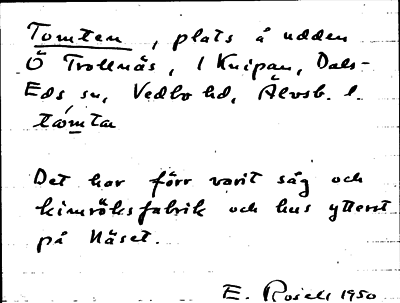 Tomten, plats å udden
Ö Trollnäs, i Knipan, Dals-
Eds sn, Vedbo hd, Älvsb. l.
tòmta
Det har förr varit såg och
kimröksfabrik och hus ytterst
på Näset.
E. Rosell 1950